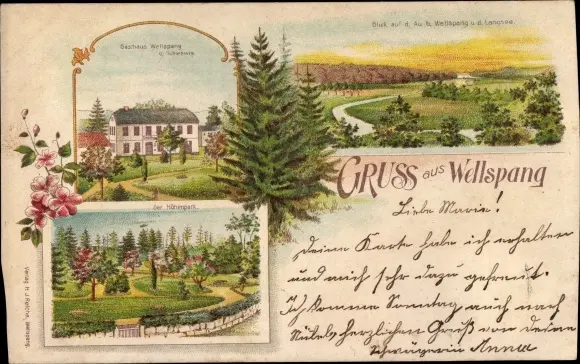 Gasthaus Wellspang
Blick auf d. Au b. Wellspang u. d. Langsee.
GRUSS aus Wellspang
Der Höhenpark.
Liebe Marie!
Deine Karte habe ich erhalten
und mich sehr dazu gefreut.
Ich komme Sonntag auch nach
Sübel, herzlichen Gruß von deine
Schwägerin Anna
Verlag H. J.